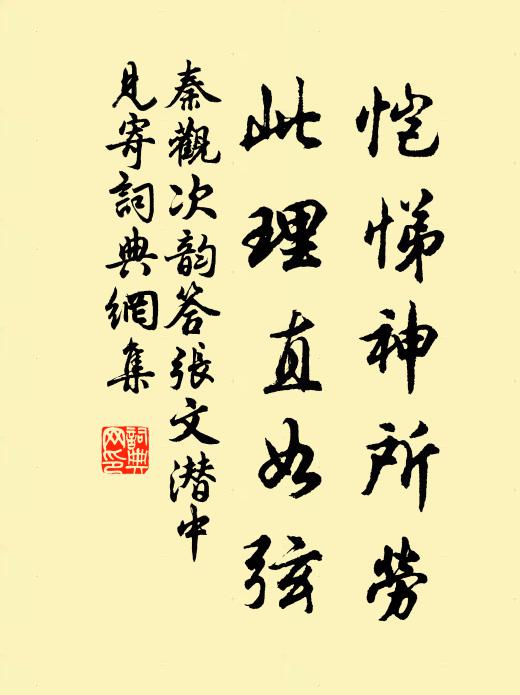 恺悌神所勞
此理直如弦
秦觀次韵答張文潜中
見寄詞典網集
詞典
网印